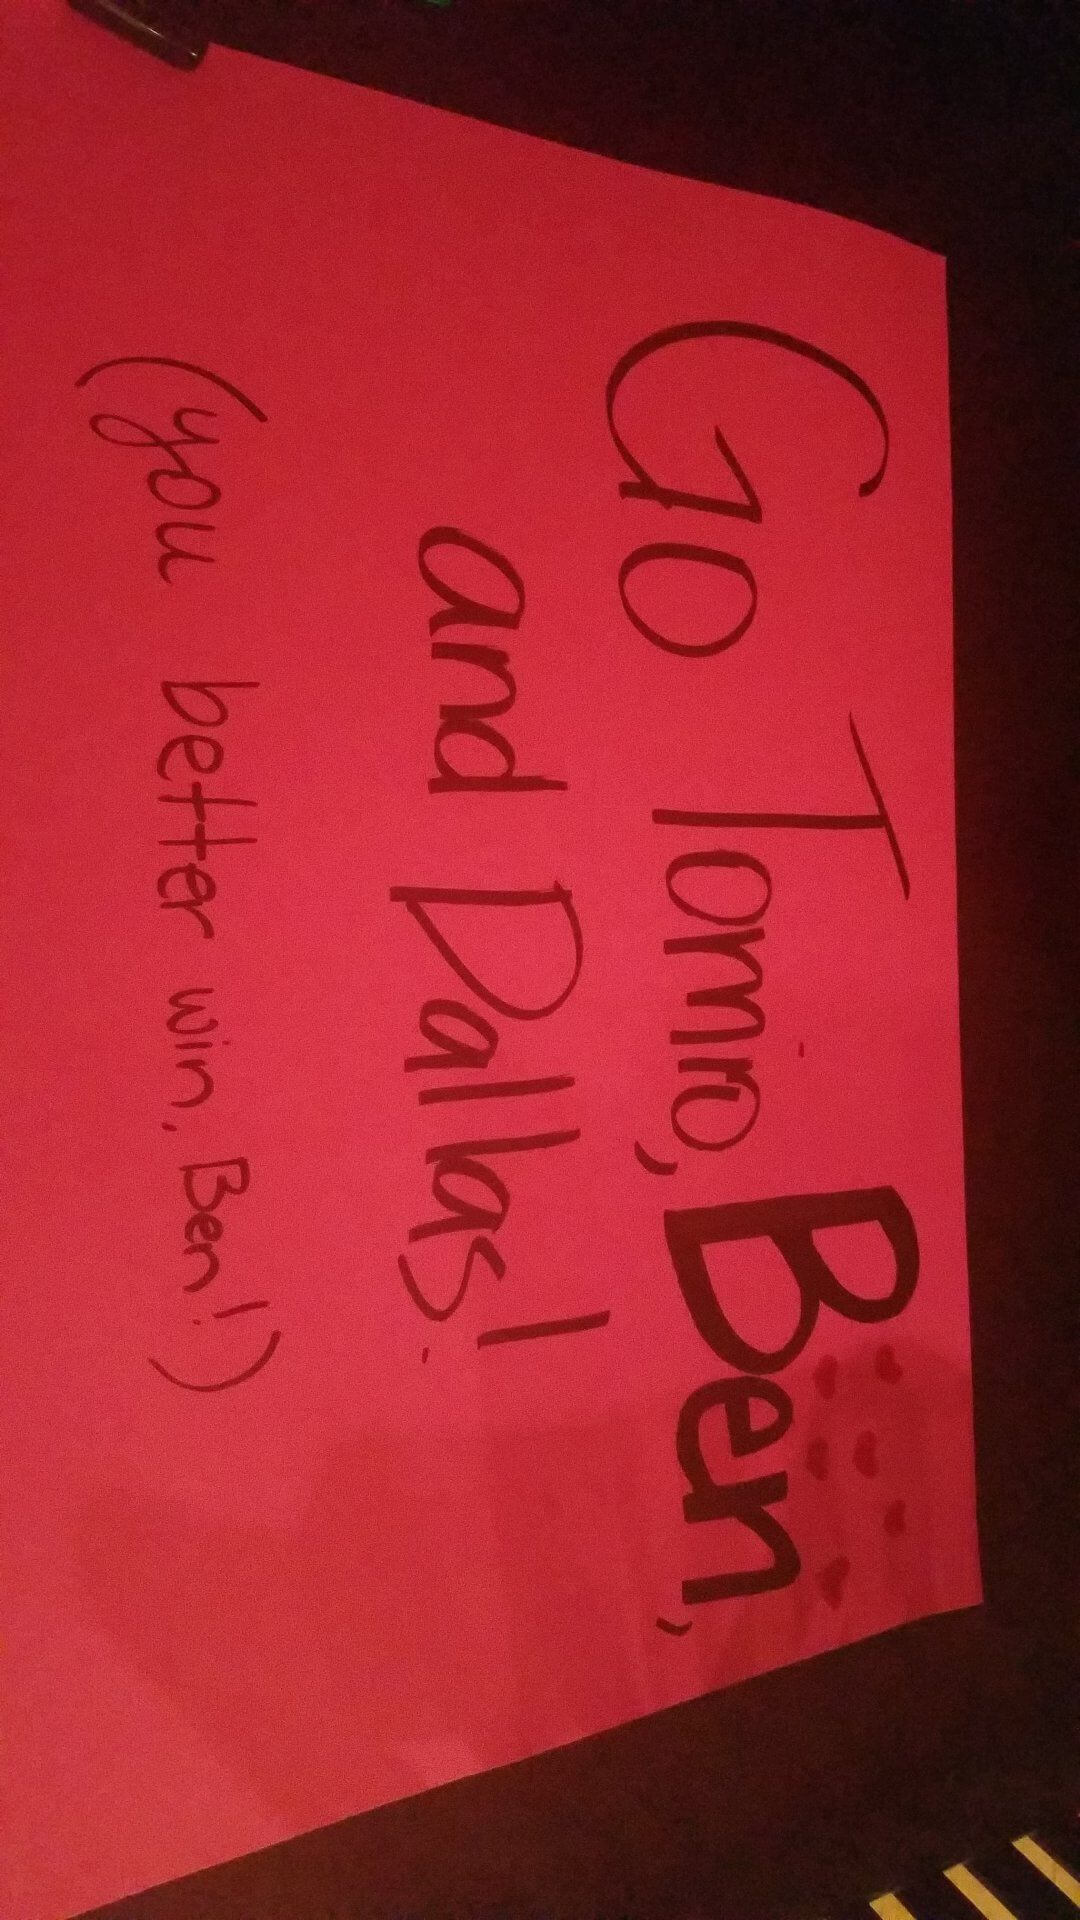 Go Tomro, Ben,
and Dallas!
(you better win, Ben!)